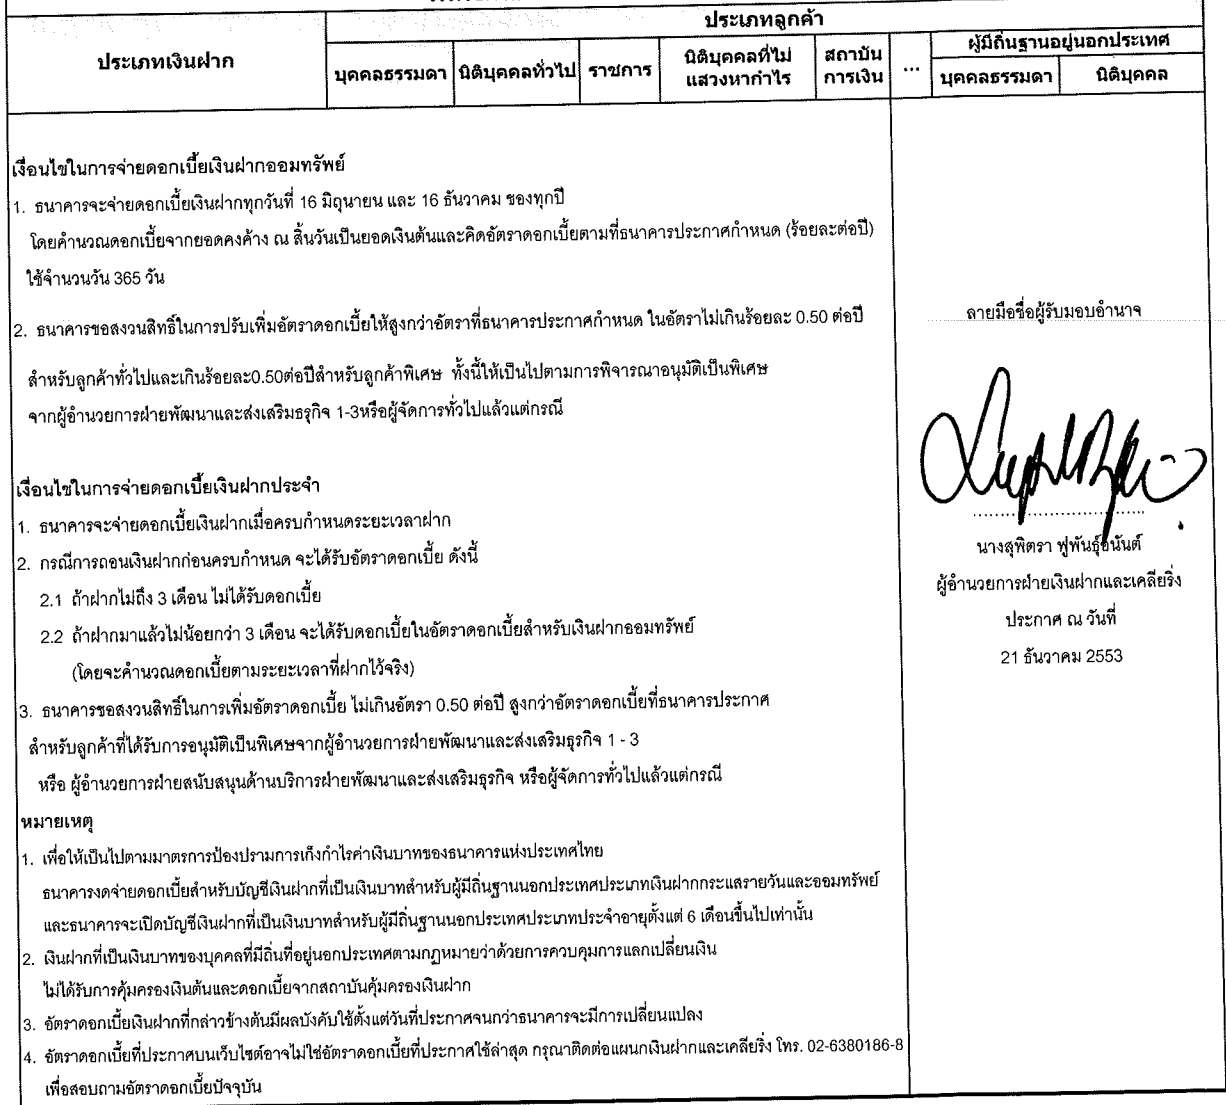 ประเภทลูกค้า
ประเภทเงินฝาก
บุคคลธรรมดา
นิติบุคคลทั่วไป
ราชการ
นิติบุคคลที่ไม่
แสวงหากำไร
สถาบัน
การเงิน
...
ผู้มีถิ่นฐานอยู่นอกประเทศ
บุคคลธรรมดา
นิติบุคคล
เงื่อนไขในการจ่ายดอกเบี้ยเงินฝากออมทรัพย์
1. ธนาคารจะจ่ายดอกเบี้ยเงินฝากทุกวันที่ 16 มิถุนายน และ 16 ธันวาคม ของทุกปี
โดยคำนวณดอกเบี้ยจากยอดคงค้าง ณ สิ้นวันเป็นยอดเงินต้นและคิดอัตราดอกเบี้ยตามที่ธนาคารประกาศกำหนด (ร้อยละต่อปี)
ใช้จำนวนวัน 365 วัน
2. ธนาคารขอสงวนสิทธิ์ในการปรับเพิ่มอัตราดอกเบี้ยให้สูงกว่าอัตราที่ธนาคารประกาศกำหนด ในอัตราไม่เกินร้อยละ 0.50 ต่อปี
สำหรับลูกค้าทั่วไปและเกินร้อยละ0.50ต่อปีสำหรับลูกค้าพิเศษ ทั้งนี้ให้เป็นไปตามการพิจารณาอนุมัติเป็นพิเศษ
จากผู้อำนวยการฝ่ายพัฒนาและส่งเสริมธุรกิจ 1-3หรือผู้จัดการทั่วไปแล้วแต่กรณี
เงื่อนไขในการจ่ายดอกเบี้ยเงินฝากประจำ
1. ธนาคารจะจ่ายดอกเบี้ยเงินฝากเมื่อครบกำหนดระยะเวลาฝาก
2. กรณีการถอนเงินฝากก่อนครบกำหนด จะได้รับอัตราดอกเบี้ย ดังนี้
2.1 ถ้าฝากไม่ถึง 3 เดือน ไม่ได้รับดอกเบี้ย
2.2 ถ้าฝากมาแล้วไม่น้อยกว่า 3 เดือน จะได้รับดอกเบี้ยในอัตราดอกเบี้ยสำหรับเงินฝากออมทรัพย์
(โดยจะคำนวณดอกเบี้ยตามระยะเวลาที่ฝากไว้จริง)
3. ธนาคารขอสงวนสิทธิ์ในการเพิ่มอัตราดอกเบี้ย ไม่เกินอัตรา 0.50 ต่อปี สูงกว่าอัตราดอกเบี้ยที่ธนาคารประกาศ
สำหรับลูกค้าที่ได้รับการอนุมัติเป็นพิเศษจากผู้อำนวยการฝ่ายพัฒนาและส่งเสริมธุรกิจ 1 - 3
หรือ ผู้อำนวยการฝ่ายสนับสนุนด้านบริการฝ่ายพัฒนาและส่งเสริมธุรกิจ หรือผู้จัดการทั่วไปแล้วแต่กรณี
หมายเหตุ
1. เพื่อให้เป็นไปตามมาตรการป้องปรามการเก็งกำไรค่าเงินบาทของธนาคารแห่งประเทศไทย
ธนาคารงดจ่ายดอกเบี้ยสำหรับบัญชีเงินฝากที่เป็นเงินบาทสำหรับผู้มีถิ่นฐานนอกประเทศประเภทเงินฝากกระแสรายวันและออมทรัพย์
และธนาคารจะเปิดบัญชีเงินฝากที่เป็นเงินบาทสำหรับผู้มีถิ่นฐานนอกประเทศประเภทประจำอายุตั้งแต่ 6 เดือนขึ้นไปเท่านั้น
2. เงินฝากที่เป็นเงินบาทของบุคคลที่มีถิ่นที่อยู่นอกประเทศตามกฎหมายว่าด้วยการควบคุมการแลกเปลี่ยนเงิน
ไม่ได้รับการคุ้มครองเงินต้นและดอกเบี้ยจากสถาบันคุ้มครองเงินฝาก
3. อัตราดอกเบี้ยเงินฝากที่กล่าวข้างต้นมีผลบังคับใช้ตั้งแต่วันที่ประกาศจนกว่าธนาคารจะมีการเปลี่ยนแปลง
4. อัตราดอกเบี้ยที่ประกาศบนเว็บไซต์อาจไม่ใช่อัตราดอกเบี้ยที่ประกาศใช้ล่าสุด กรุณาติดต่อแผนกเงินฝากและเคลียริ่ง โทร. 02-6380186-8
เพื่อสอบถามอัตราดอกเบี้ยปัจจุบัน
ลายมือชื่อผู้รับมอบอำนาจ
นางสุพิตรา ฟูพันธุ์อนันต์
ผู้อำนวยการฝ่ายเงินฝากและเคลียริ่ง
ประกาศ ณ วันที่
21 ธันวาคม 2553